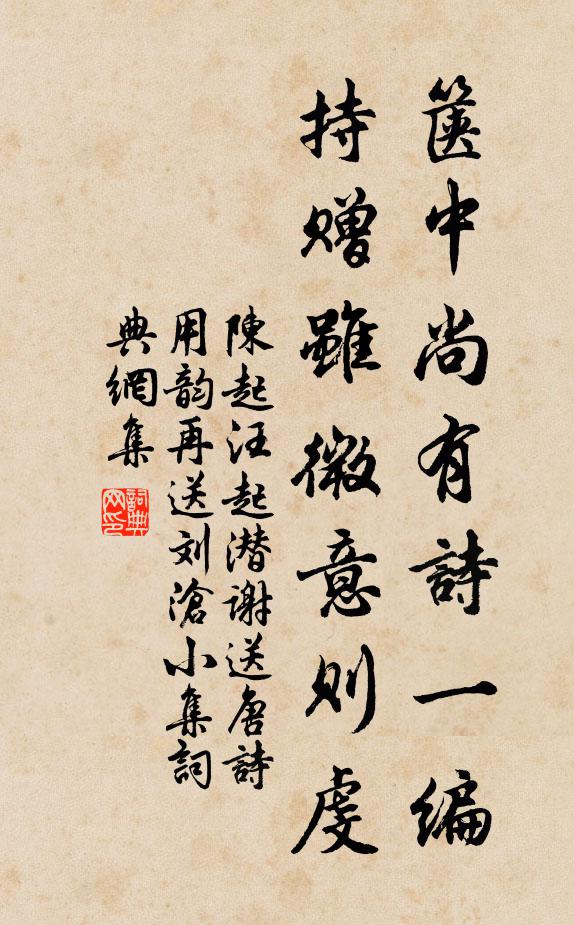 篋中尚有詩一编
持赠雖微意则虔
陳起汪起潜謝送唐詩
用韵再送刘滄小集詞
典網集
詞典网印